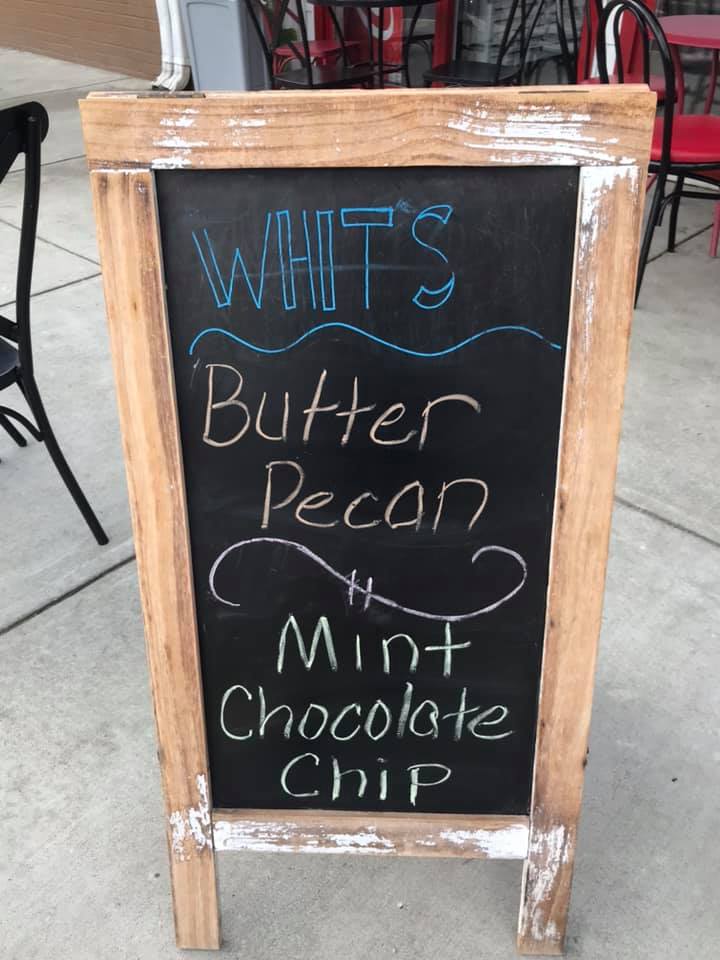 WHIT'S
Butter
Pecan
Mint
Chocolate
Chip